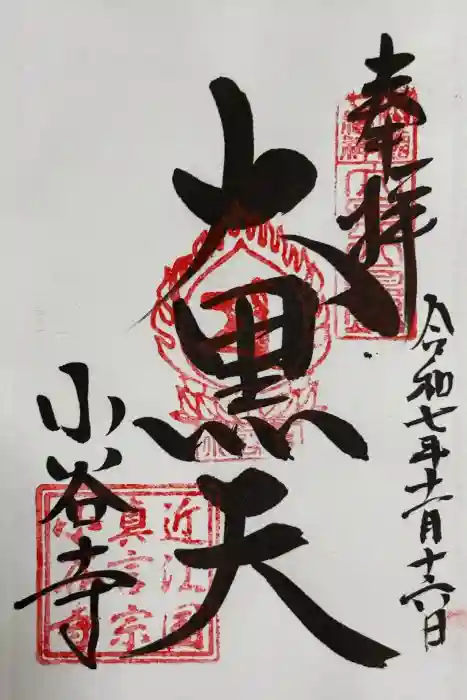 奉拝
令和七年十一月十六日
大黒天
小谷寺
近江国
真言宗